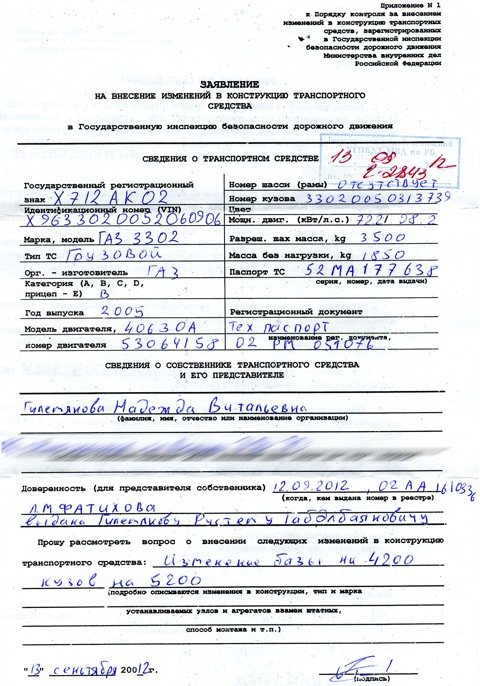 Приложение N 1
к Порядку контроля за внесением
изменений в конструкцию транспортных
средств, зарегистрированных
в Государственной инспекции
безопасности дорожного движения
Министерства внутренних дел
Российской Федерации
ЗАЯВЛЕНИЕ
НА ВНЕСЕНИЕ ИЗМЕНЕНИЙ В КОНСТРУКЦИЮ ТРАНСПОРТНОГО
СРЕДСТВА
в Государственную инспекцию безопасности дорожного движения
СВЕДЕНИЯ О ТРАНСПОРТНОМ СРЕДСТВЕ
13 09 12
2-2843
Государственный регистрационный
знак Х712АК02
Идентификационный номер (VIN)
X9633020052060906
Марка, модель ГАЗ 3302
Тип ТС Грузовой
Орг. - изготовитель ГАЗ
Категория (А, В, С, D,
прицеп - Е) В
Год выпуска 2005
Модель двигателя, 40630А
номер двигателя 53064158
Номер шасси (рамы) отсутствует
Номер кузова 33020050313739
Цвет
Мощн. двиг. (кВт/л.с.) 72.2/ 98.2
Разреш. max масса, kg 3500
Масса без нагрузки, kg 1850
Паспорт ТС 52МА177638
серия, номер, дата выдачи)
Регистрационный документ
Тех паспорт
наименование рег. документа,
02 РМ 051076
СВЕДЕНИЯ О СОБСТВЕННИКЕ ТРАНСПОРТНОГО СРЕДСТВА
И ЕГО ПРЕДСТАВИТЕЛЕ
Надежда Витальевна
(фамилия, имя, отчество или наименование организации)
Доверенность (для представителя собственника) 12.09.2012 , 02 АА
(когда, кем выдана номер в реестре)
Л.М ФАТИХОВА
выдана Рустему
Прошу рассмотреть вопрос о внесении следующих изменений в конструкцию
транспортного средства: Изменение базы на 4200
кузов на 5200
(подробно описываются изменения в конструкции, тип и марка
устанавливаемых узлов и агрегатов взамен штатных,
способ монтажа и т.п.)
"13" сентября 20012г.
(подпись)